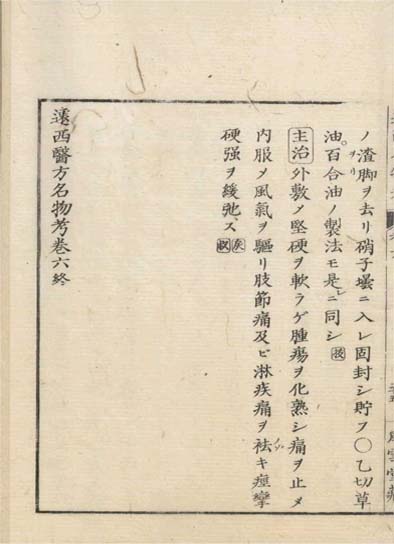 ノ渣脚ヲ去リ硝子壜ニ入レ固封シ貯フ〇乙切草
油百合油ノ製法モ是ニ同シ 扱
主治 外敷メ堅硬ヲ軟ラゲ腫瘍ヲ化熟シ痛ヲ止メ
内服メ風氣ヲ驅リ肢節痛及ビ淋疾痛ヲ祛キ痙攣
硬强ヲ緩弛ス
遠西醫方名物考卷六終